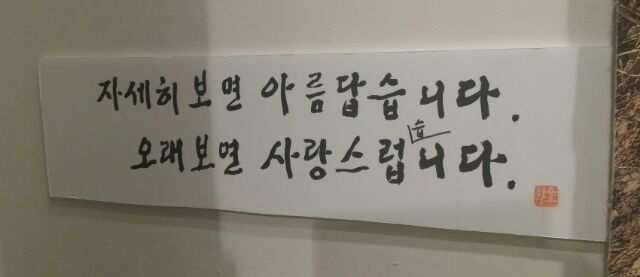 자세히보면 아름답습니다.
오래보면 사랑스럽습니다.